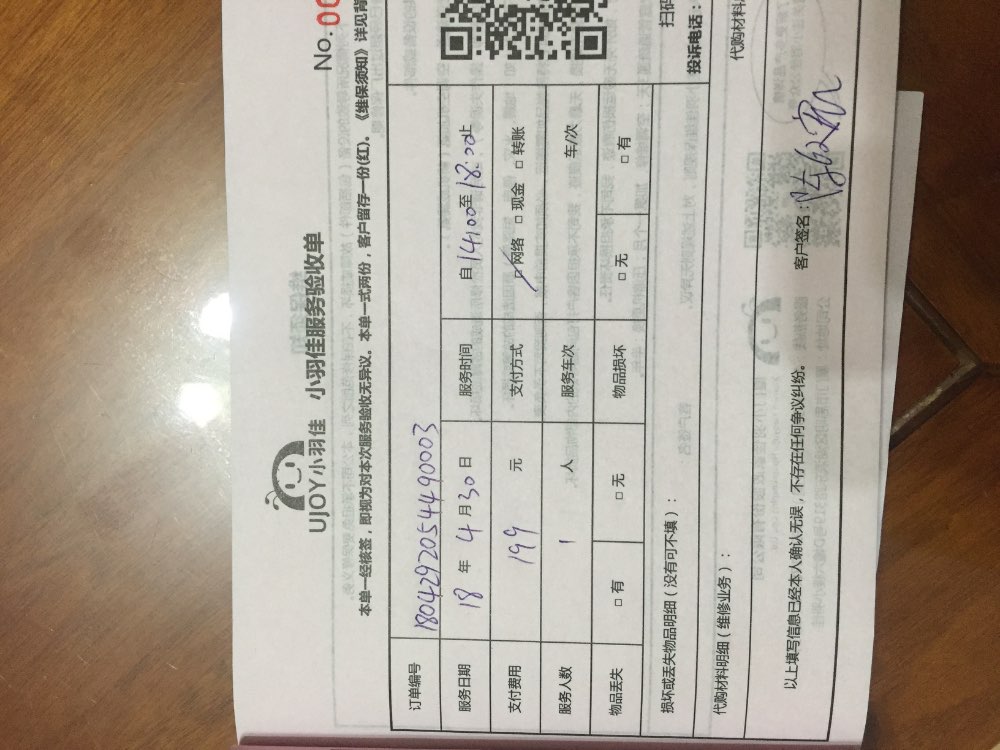 No.00
UJOY小羽佳 小羽佳服务验收单
本单一经核签，即视为对本次服务验收无异议。本单一式两份，客户留存一份(红)。《维保须知》详见背
订单编号 1804292054490003
服务日期 18 年 4 月 30 日 服务时间 自 14:00 至 18:00 止
支付费用 199 元 支付方式 □网络 □现金 □转账
服务人数 1 人 服务车次 车/次
物品丢失 □有 □无 物品损坏 □无 □有
扫码
损坏或丢失物品明细（没有可不填）：
投诉电话：
代购材料明细（维修业务）：
代购材料
以上填写信息已经本人确认无误，不存在任何争议纠纷。
客户签名：